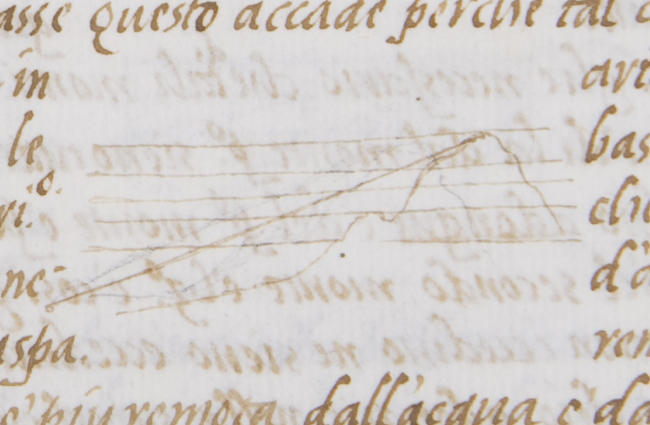 asse questo accade perche tal
in
le
ri.o.
ne
aspa.
e' piu remota dall'acqua e' da
art
bas
che
d'a
ren